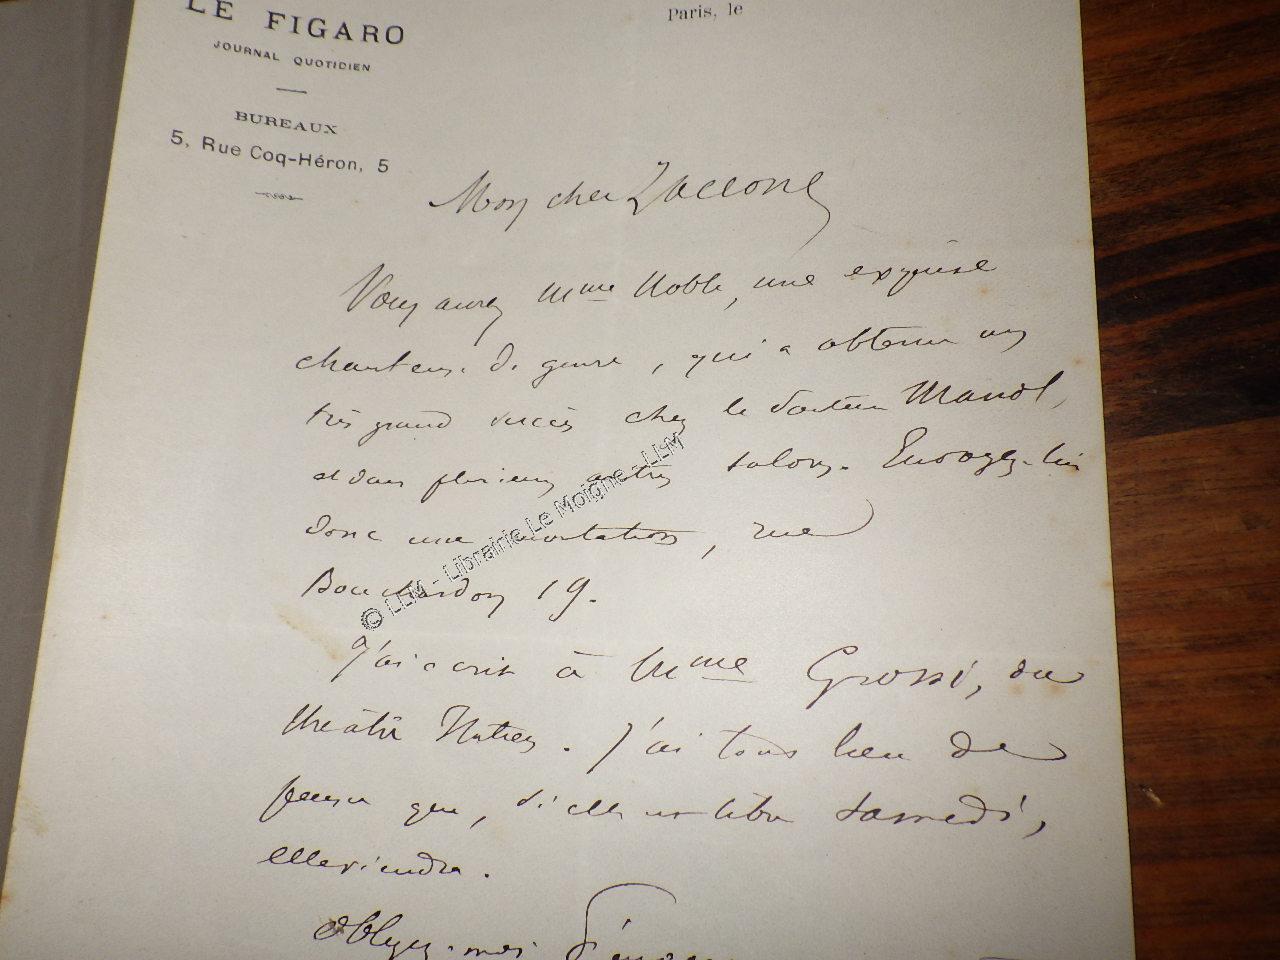 LE FIGARO
JOURNAL QUOTIDIEN
BUREAUX
5, Rue Coq-Héron, 5
Paris, le
Mon cher Zaccone
Vous aurez Mme Noble, une exquise
chanteuse de genre, qui a obtenu un
très grand succès chez le docteur Mandl,
et dans plusieurs autres salons. Envoyez-lui
donc une invitation, rue
Bouchardon 19.
J'ai écrit à Mme Grossi, du
théâtre Italien. J'ai tout lieu de
penser que, si elle est libre samedi,
elle viendra.
Obligez-moi d'envoyer
© LLM - Librairie Le Moigne - LLM